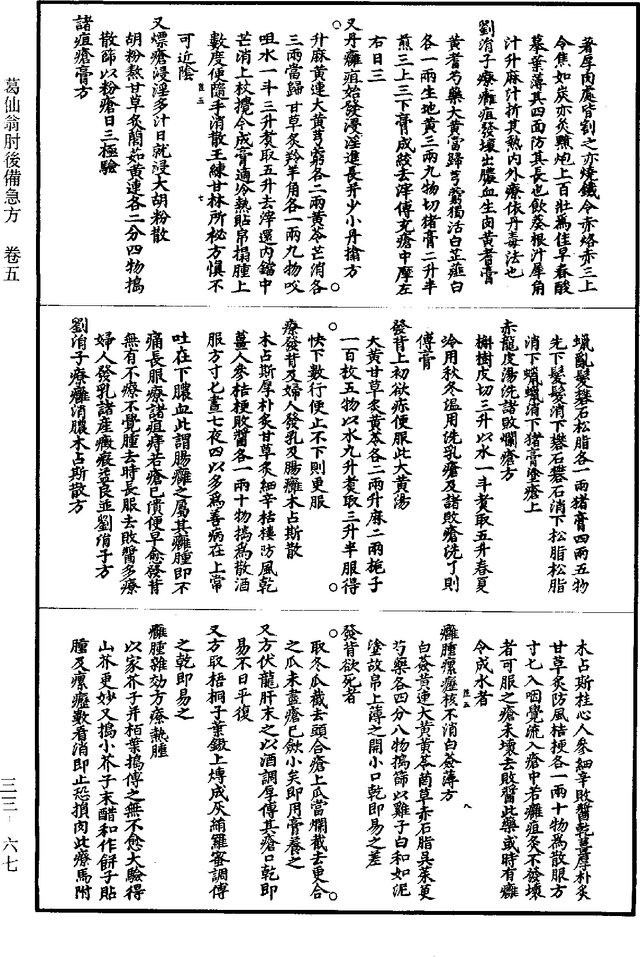 著厚肉處皆割之亦燒鐵令赤烙赤三上
令焦如炭亦灸黡炮上百壯為佳早春酸
摹葉薄其四面防其長也飲葵根汁犀角
汁升麻汁折其熱內外療依丹毒法也
劉涓子療癰疽發壞出膿血生肉黃耆膏
黃耆芍藥大黃當歸芎藭獨活白芷薤白
各一兩生地黃三兩九物切猪膏二升半
煎三上三下膏成絞去滓傅充瘡中摩左
右日三
又丹癰疽始發浸淫進長并少小丹擒方
升麻黃連大黃芎藭各二兩黃芩芒消各
三兩當歸甘草炙羚羊角各一兩九物㕮
咀水一斗三升煮取五升去滓還內鐺中
芒消上杖攪令成膏適冷熱貼帛搨腫上
數度便隨手消散王練甘林所秘方慎不
可近陰
又熛瘡浸淫多汁日就浸大胡粉散
胡粉熬甘草炙䕡茹黃連各二分四物搗
散篩以粉瘡日三極驗
諸疽瘡膏方
蠟亂髮礬石松脂各一兩猪膏四兩五物
先下髮髮消下礬石礬石消下松脂松脂
消下蠟蠟消下猪膏塗瘡上
赤龍皮湯洗諸敗爛瘡方
槲樹皮切三升以水一斗煮取五升春夏
冷用秋冬溫用洗乳瘡及諸敗瘡洗了則
傅膏
發背上初欲疹便服此大黃湯
大黃甘草炙黃芩各二兩升麻二兩梔子
一百枚五物以水九升煮取三升半服得
快下數行便止不下則更服
療發背及婦人發乳及腸癰木占斯散
木占斯厚朴炙甘草炙細辛栝樓防風乾
薑人參桔梗敗醬各一兩十物搗為散酒
服方寸匕晝七夜四以多為善病在上常
吐在下膿血此謂腸癰之屬其癰腫即不
痛長服療諸疽痔若瘡已潰便早愈發背
無有不療不覺腫去時長服去敗醬多療
婦人發乳諸產癥瘕益良並劉涓子方
劉涓子療癰消膿木占斯散方
木占斯桂心人參細辛敗醬乾薑厚朴炙
甘草炙防風桔梗各一兩十物為散服方
寸匕入咽覺流入瘡中若癰疽灸不發壞
者可服之瘡未壞去敗醬此藥或時有癰
令成水者
癰腫瘰癧核不消白蘞薄方
白蘞黃連大黃黃芩䓖草赤石脂吳茱萸
芍藥各四分八物搗篩以雞子白和如泥
塗故帛上薄之開小口乾即易之差
發背欲死者
取冬瓜截去頭合瘡上瓜當爛截去更合
之瓜未盡瘡已斂小矣即用膏養之
又方伏龍肝末之以酒調厚傅其瘡口乾即
易不日平復
又方取梧桐子葉鏊上煿成灰絹羅蜜調傅
之乾即易之
癰腫雜効方療熱腫
以家芥子并栢葉搗傅之無不愈大驗得
山芥更妙又搗小芥子末醋和作餅子貼
腫及瘰癧數看消即止恐損肉此療馬附
葛仙翁肘後備急方 卷五
三三－六七